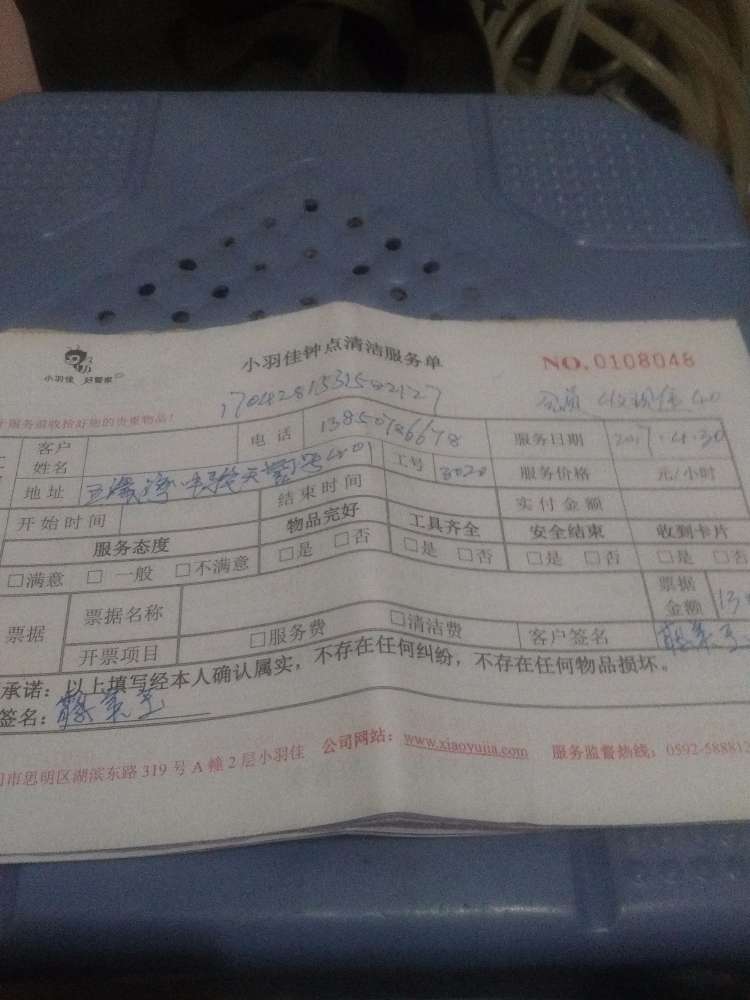 小羽佳 好管家
小羽佳钟点清洁服务单
NO.0108048
服务前收拾好您的贵重物品!
客户姓名
电话
服务日期 2017.4.30
地址
工号 3020
服务价格 元/小时
开始时间
结束时间
实付金额
服务态度 物品完好 工具齐全 安全结束 收到卡片
□满意 □一般 □不满意 □是 □否 □是 □否 □是 □否 □是 □否
票据
票据名称
票据金额
开票项目 □服务费 □清洁费 客户签名
承诺:以上填写经本人确认属实,不存在任何纠纷,不存在任何物品损坏。
签名:
市思明区湖滨东路319号A幢2层小羽佳 公司网站:www.xiaoyujia.com 服务监督热线:0592-588812